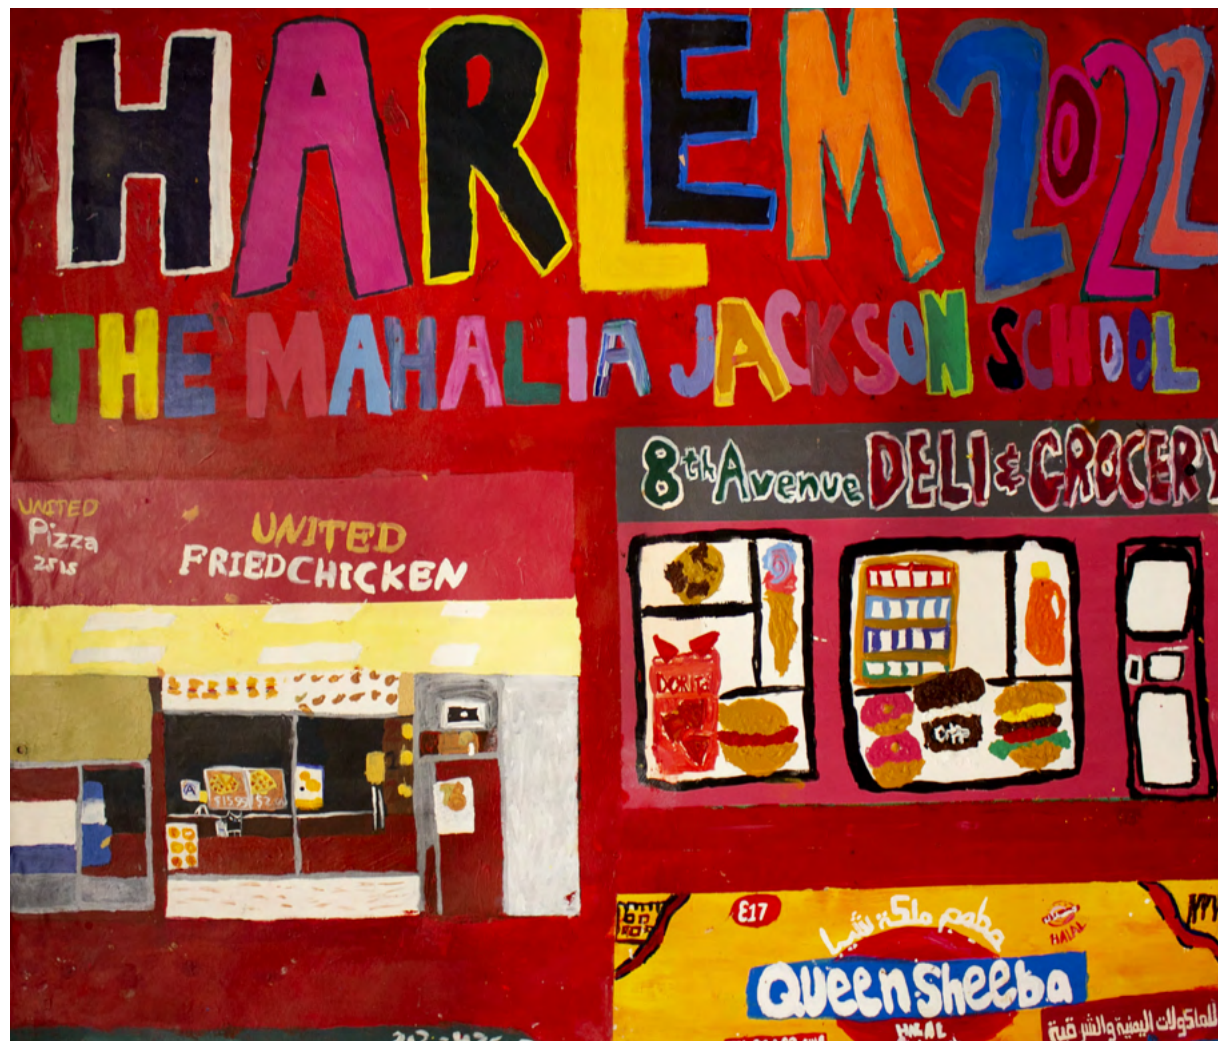 HARLEM 2022
THE MAHALIA JACKSON SCHOOL
8th Avenue DELI & GROCERY
UNITED
Pizza
2515
UNITED
FRIED CHICKEN
DORITOS
A
$15.99 $2
E17
مطعم ملكة شيبا
HALAL
Queen Sheeba
HALAL
للماكولات اليمنية والشرقية